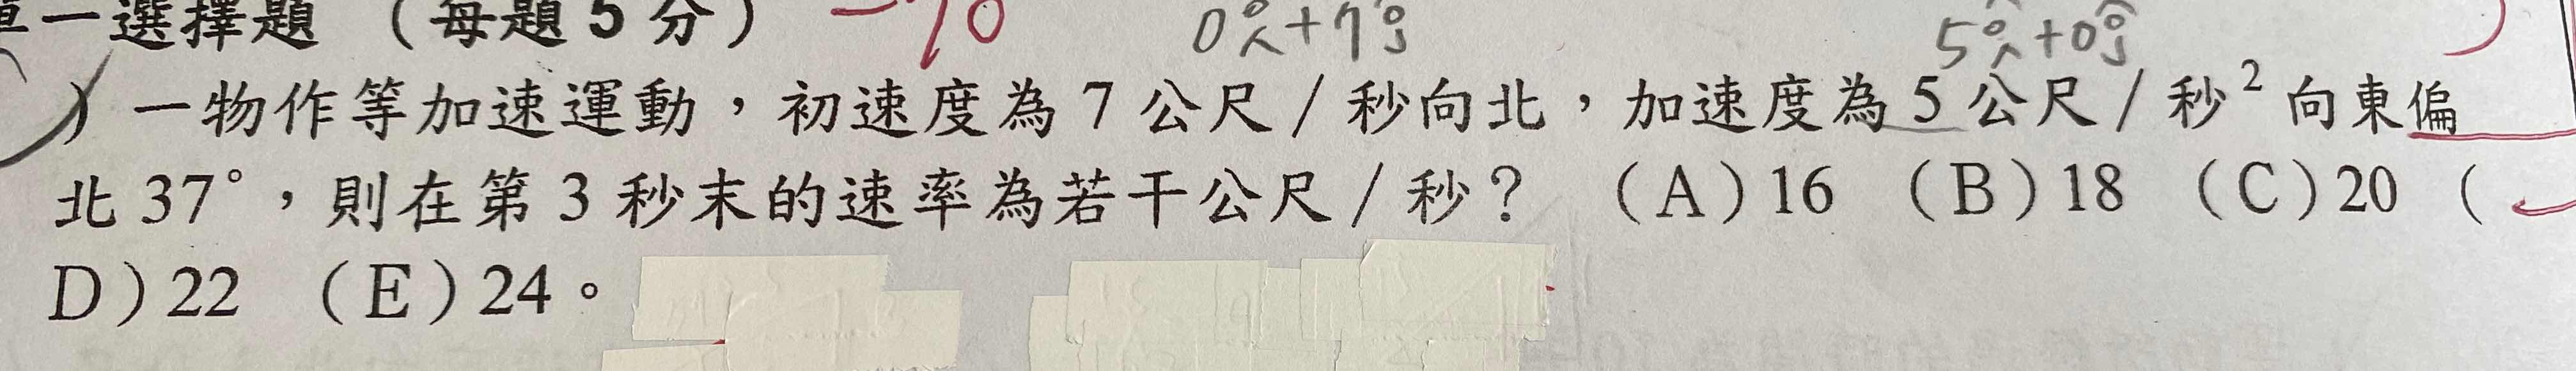 一選擇題 （每題5分） -10 0î+7ĵ 5î+0ĵ
）一物作等加速運動，初速度為7公尺/秒向北，加速度為5公尺/秒²向東偏
北37°，則在第3秒末的速率為若干公尺/秒？ （A）16 （B）18 （C）20 （
D）22 （E）24。